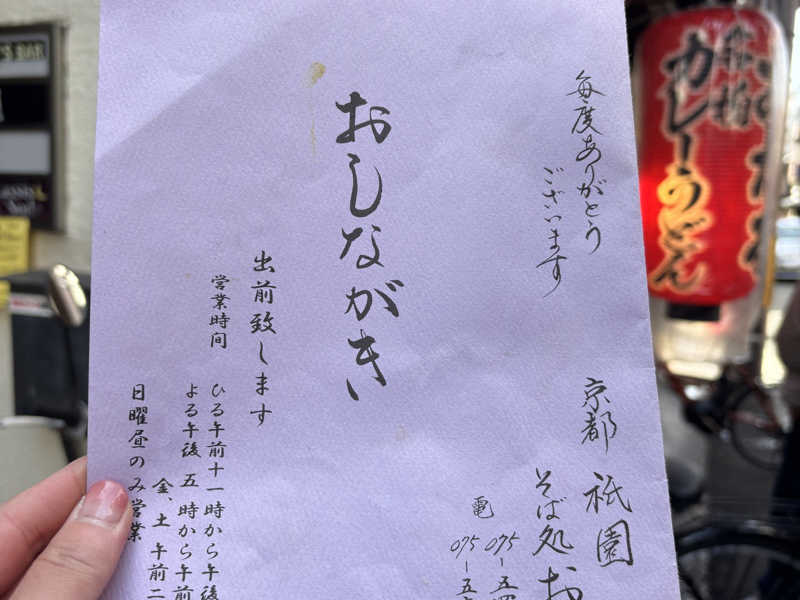 毎度ありがとう
ございます
京都 祇園
そば処 お
電
075-五四
075-五
おしながき
出前致します
営業時間
ひる午前十一時から午後
よる午後 五 時から午前
金、土 午前二
日曜昼のみ営業
カレーうどん
BAR